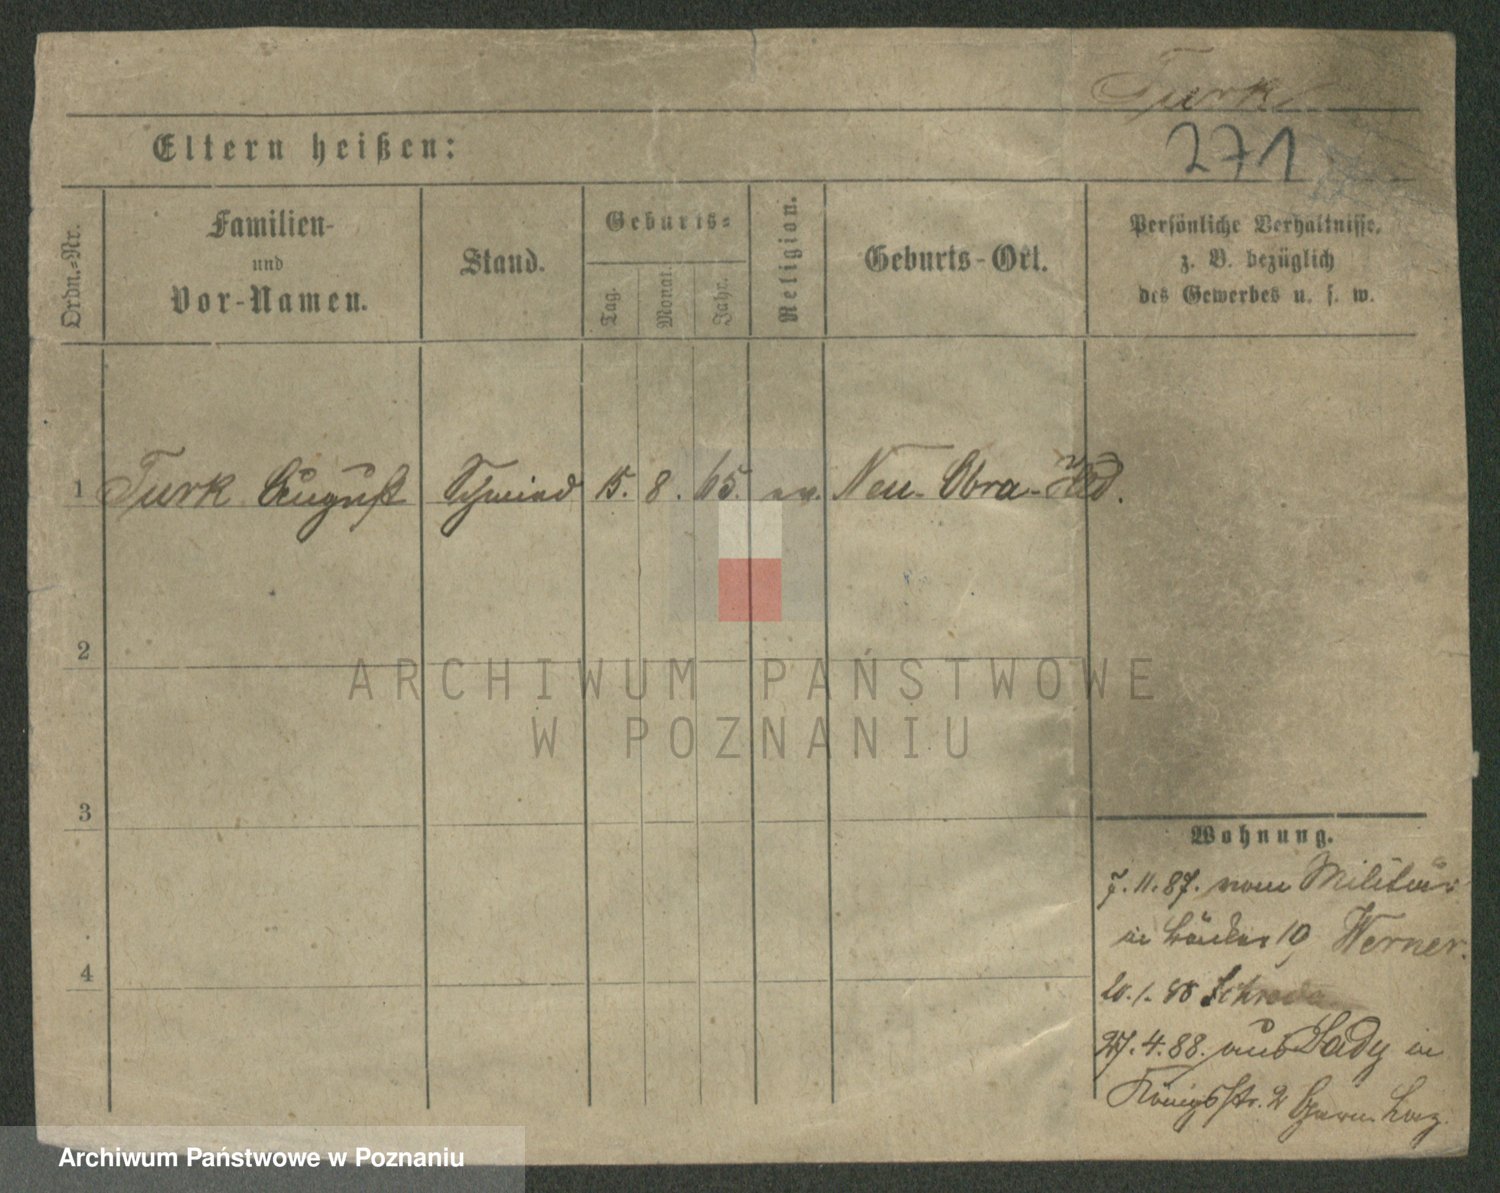 Turk
271
Eltern heißen:
Ordn.-Nr.
Familien-
und
Vor-Namen.
Stand.
Geburts-
Tag.
Monat.
Jahr.
Religion.
Geburts-Ort.
Persönliche Verhältnisse,
z. B. bezüglich
des Gewerbes u. s. w.
1 Turk August Schmied 15. 8. 65. ev. Neu-Obra-Hld.
2
3
4
Wohnung.
7.11.87. vom Militär
in 10, Werner.
20.1.88 Schroda
27.4.88. aus Sady in
Königsstr. 2
ARCHIWUM PAŃSTWOWE
W POZNANIU
Archiwum Państwowe w Poznaniu